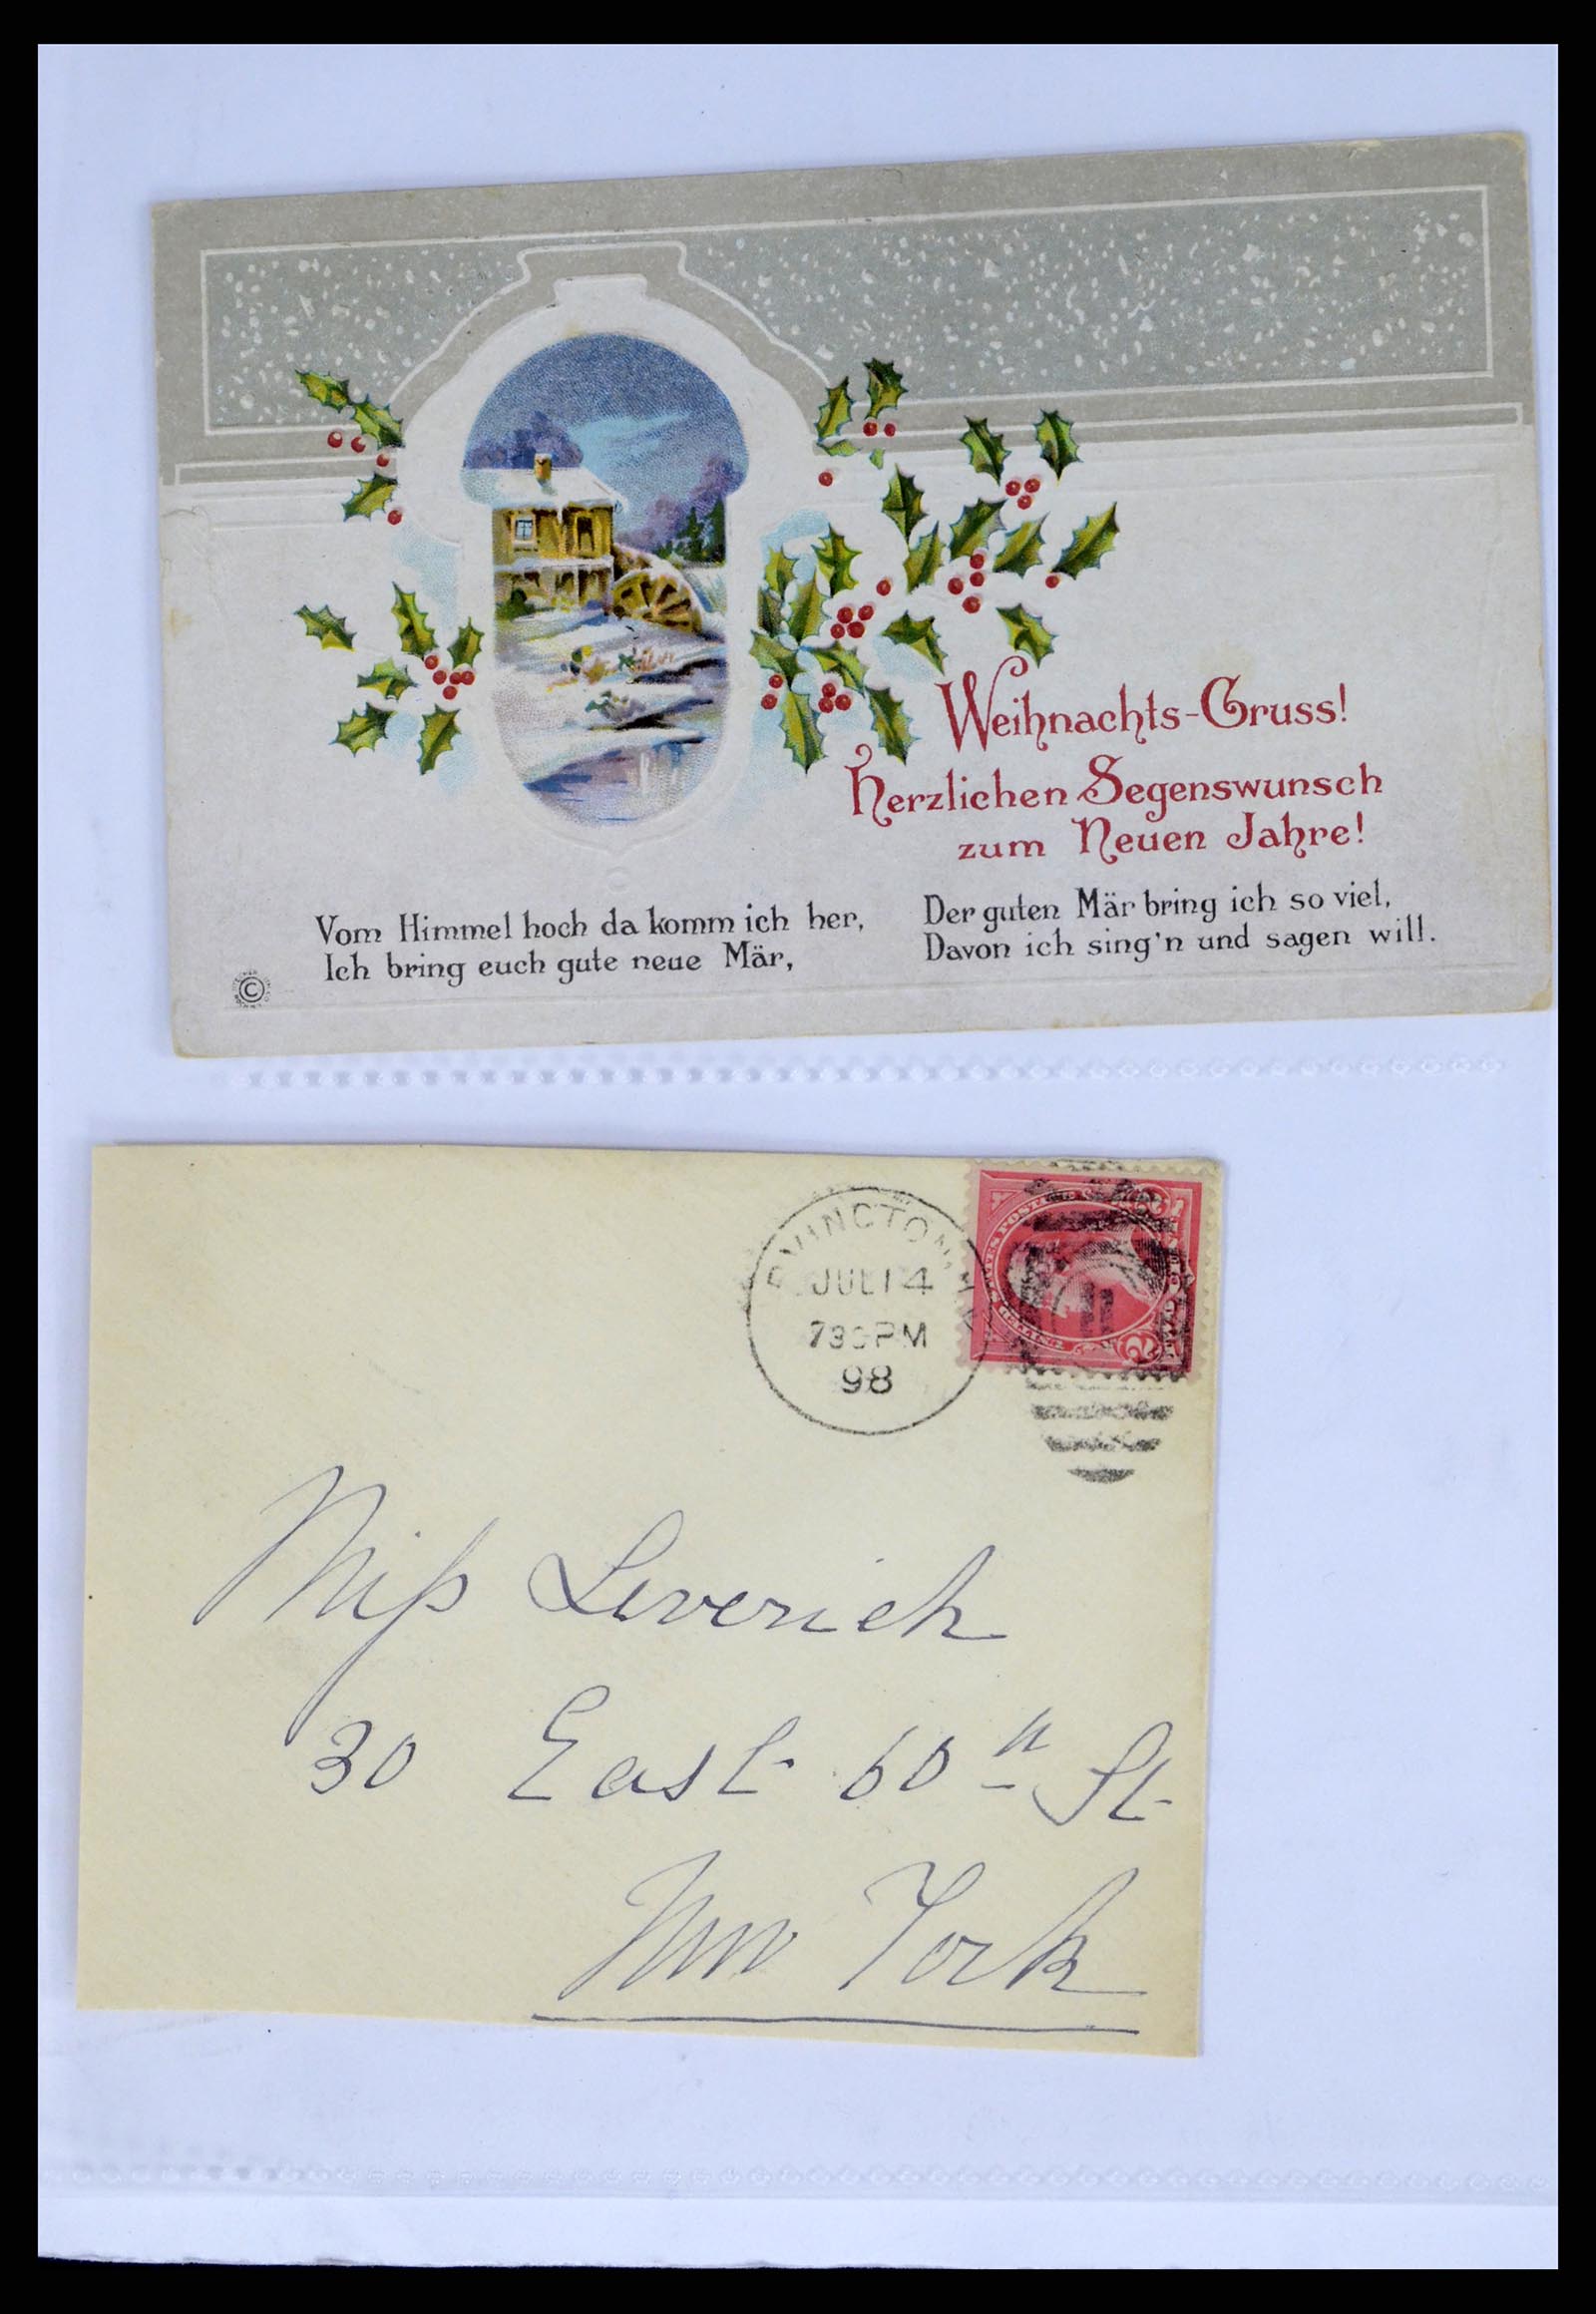 Weihnachts-Gruss!
Herzlichen Segenswunsch
zum Neuen Jahre!
Vom Himmel hoch da komm ich her,
Ich bring euch gute neue Mär,
Der guten Mär bring ich so viel,
Davon ich sing'n und sagen will.
©
JUL 14
730 PM
98
2
2
Miss Leverich
30 East 60th St
New York